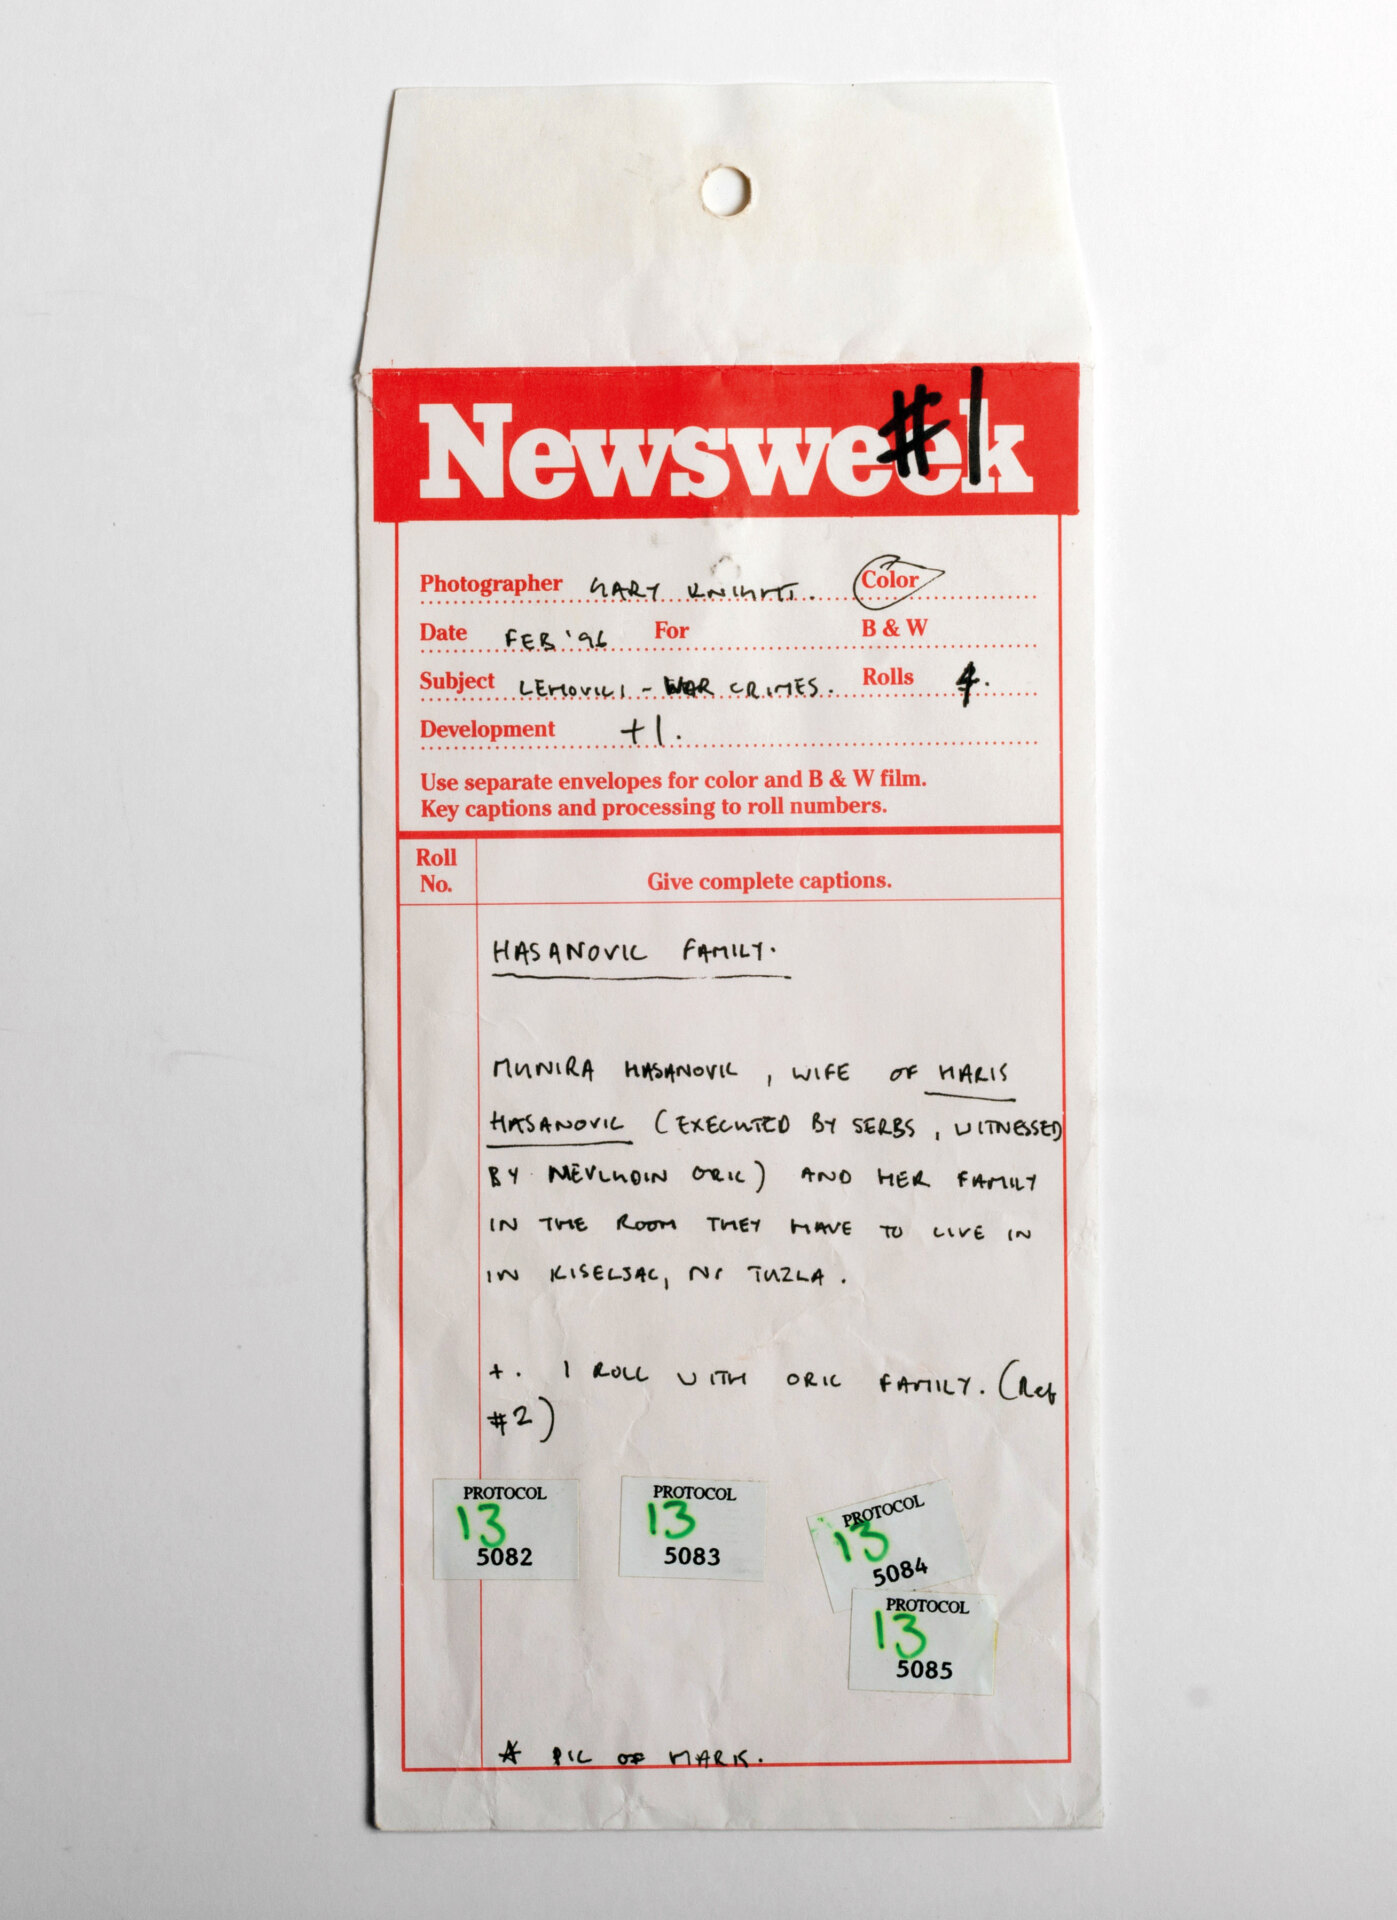 Newsweek #1
Photographer GARY KNIGHT. Color
Date FEB '96 For B & W
Subject LEHOVICI - WAR CRIMES. Rolls 4.
Development +1.
Use separate envelopes for color and B & W film.
Key captions and processing to roll numbers.
Roll
No.
Give complete captions.
HASANOVIC FAMILY.
MUNIRA HASANOVIC, WIFE OF HARIS
HASANOVIC (EXECUTED BY SERBS, WITNESSED
BY MEVLUDIN ORIC) AND HER FAMILY
IN THE ROOM THEY HAVE TO LIVE IN
IN KISELJAC, Nr TUZLA.
+. 1 ROLL WITH ORIC FAMILY. (Ref
#2)
PROTOCOL
13
5082
PROTOCOL
13
5083
PROTOCOL
13
5084
PROTOCOL
13
5085
* PIC OF